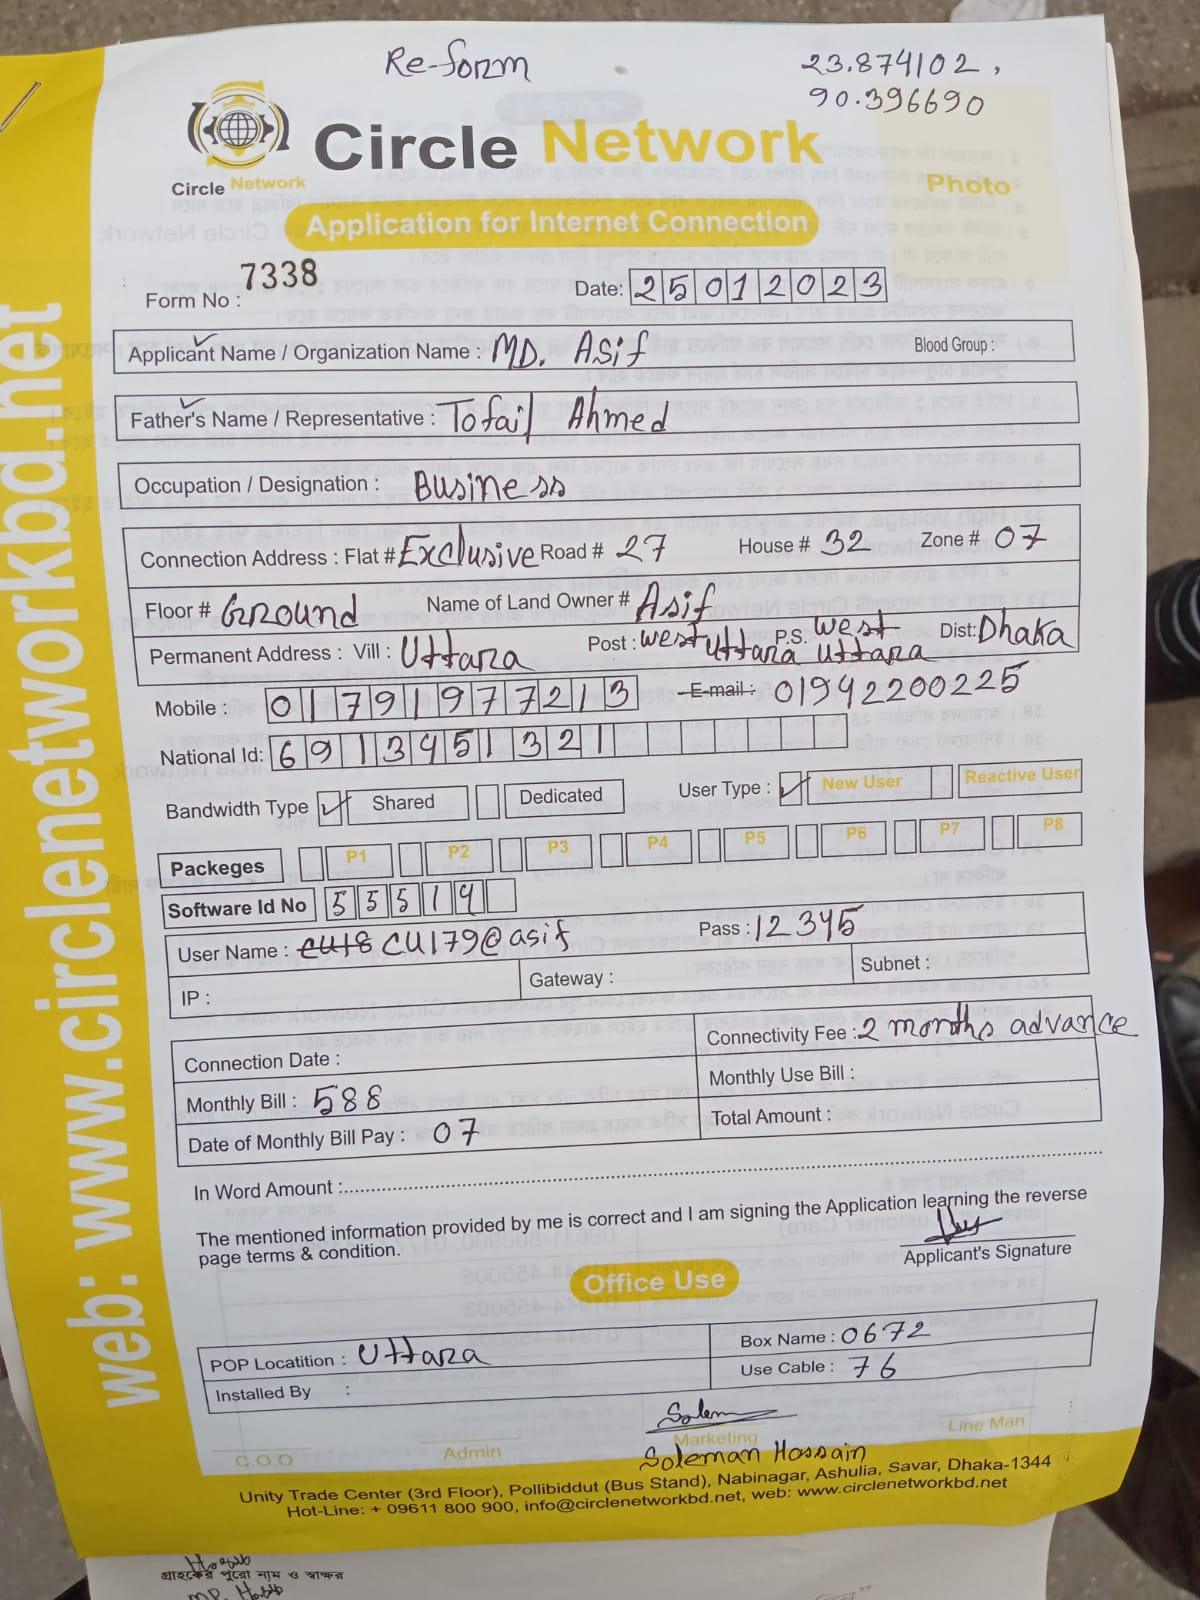 Re-form
23.874102,
90.396690
Circle Network
Circle Network
Photo
Application for Internet Connection
Form No : 7338
Date: 25012023
Applicant Name / Organization Name : MD. Asif Blood Group :
Father's Name / Representative : Tofail Ahmed
Occupation / Designation : Business
Connection Address : Flat # Exclusive Road # 27 House # 32 Zone # 07
Floor # Ground Name of Land Owner # Asif
Permanent Address : Vill : Uttara Post : west uttara P.S. west uttara Dist: Dhaka
Mobile : 01791977213 E-mail : 01942200225
National Id: 6913451321
Bandwidth Type Shared Dedicated User Type : New User Reactive User
Packeges P1 P2 P3 P4 P5 P6 P7 P8
Software Id No 55514
User Name : CU179@asif Pass : 12345
IP : Gateway : Subnet :
Connection Date : Connectivity Fee : 2 months advance
Monthly Bill : 588 Monthly Use Bill :
Date of Monthly Bill Pay : 07 Total Amount :
In Word Amount :
The mentioned information provided by me is correct and I am signing the Application learning the reverse
page terms & condition.
Applicant's Signature
Office Use
POP Locatition : Uttara Box Name : 0672
Installed By : Use Cable : 76
Solem
C.O.O Admin Marketing Line Man
Soleman Hossain
Unity Trade Center (3rd Floor), Pollibiddut (Bus Stand), Nabinagar, Ashulia, Savar, Dhaka-1344
Hot-Line: + 09611 800 900, info@circlenetworkbd.net, web: www.circlenetworkbd.net
web: www.circlenetworkbd.net
গ্রাহকের পুরো নাম ও স্বাক্ষর